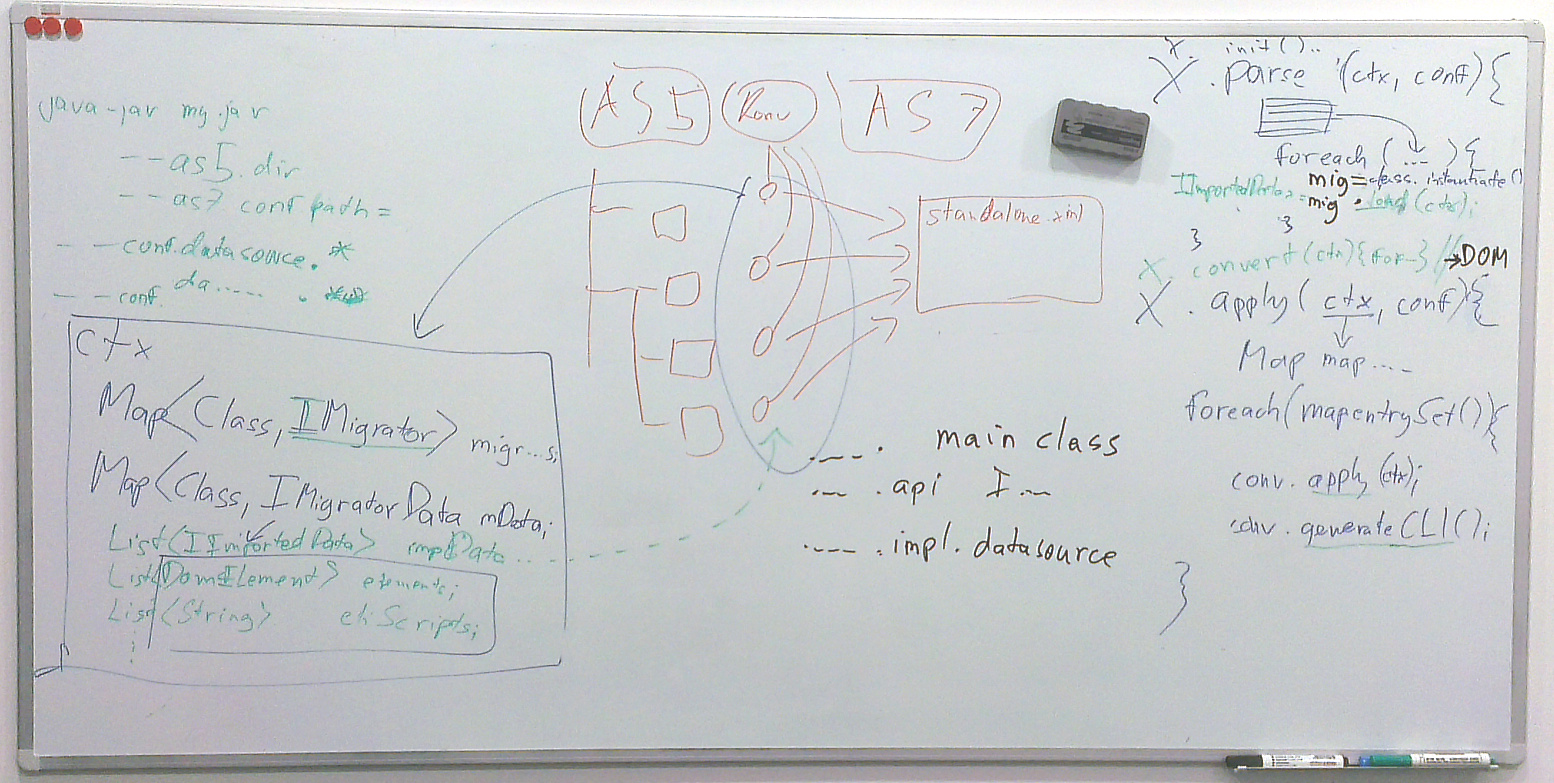 java -jar my.jar
--as5.dir
--as7.conf path=
--conf.datasource.*
--conf. da..... .
ctx
Map<Class, IMigrator> migr...s;
Map<Class, IMigratorData mData;
List<IImportedData> impData...
List<DomElement> elements;
List<String> cliScripts;
AS5
Konv
AS7
standalone.xml
----. main class
---.api I...
----.impl.datasource
X. init()..
X.parse (ctx, conf){
foreach (...){
mig=class.instantiate()
IImportedData=mig.load(ctx);
}
}
X.convert(ctx){for-} // →DOM
X.apply(ctx, conf){
Map map....
foreach(mapentrySet()){
conv.apply(ctx);
conv.generateCLI();
}